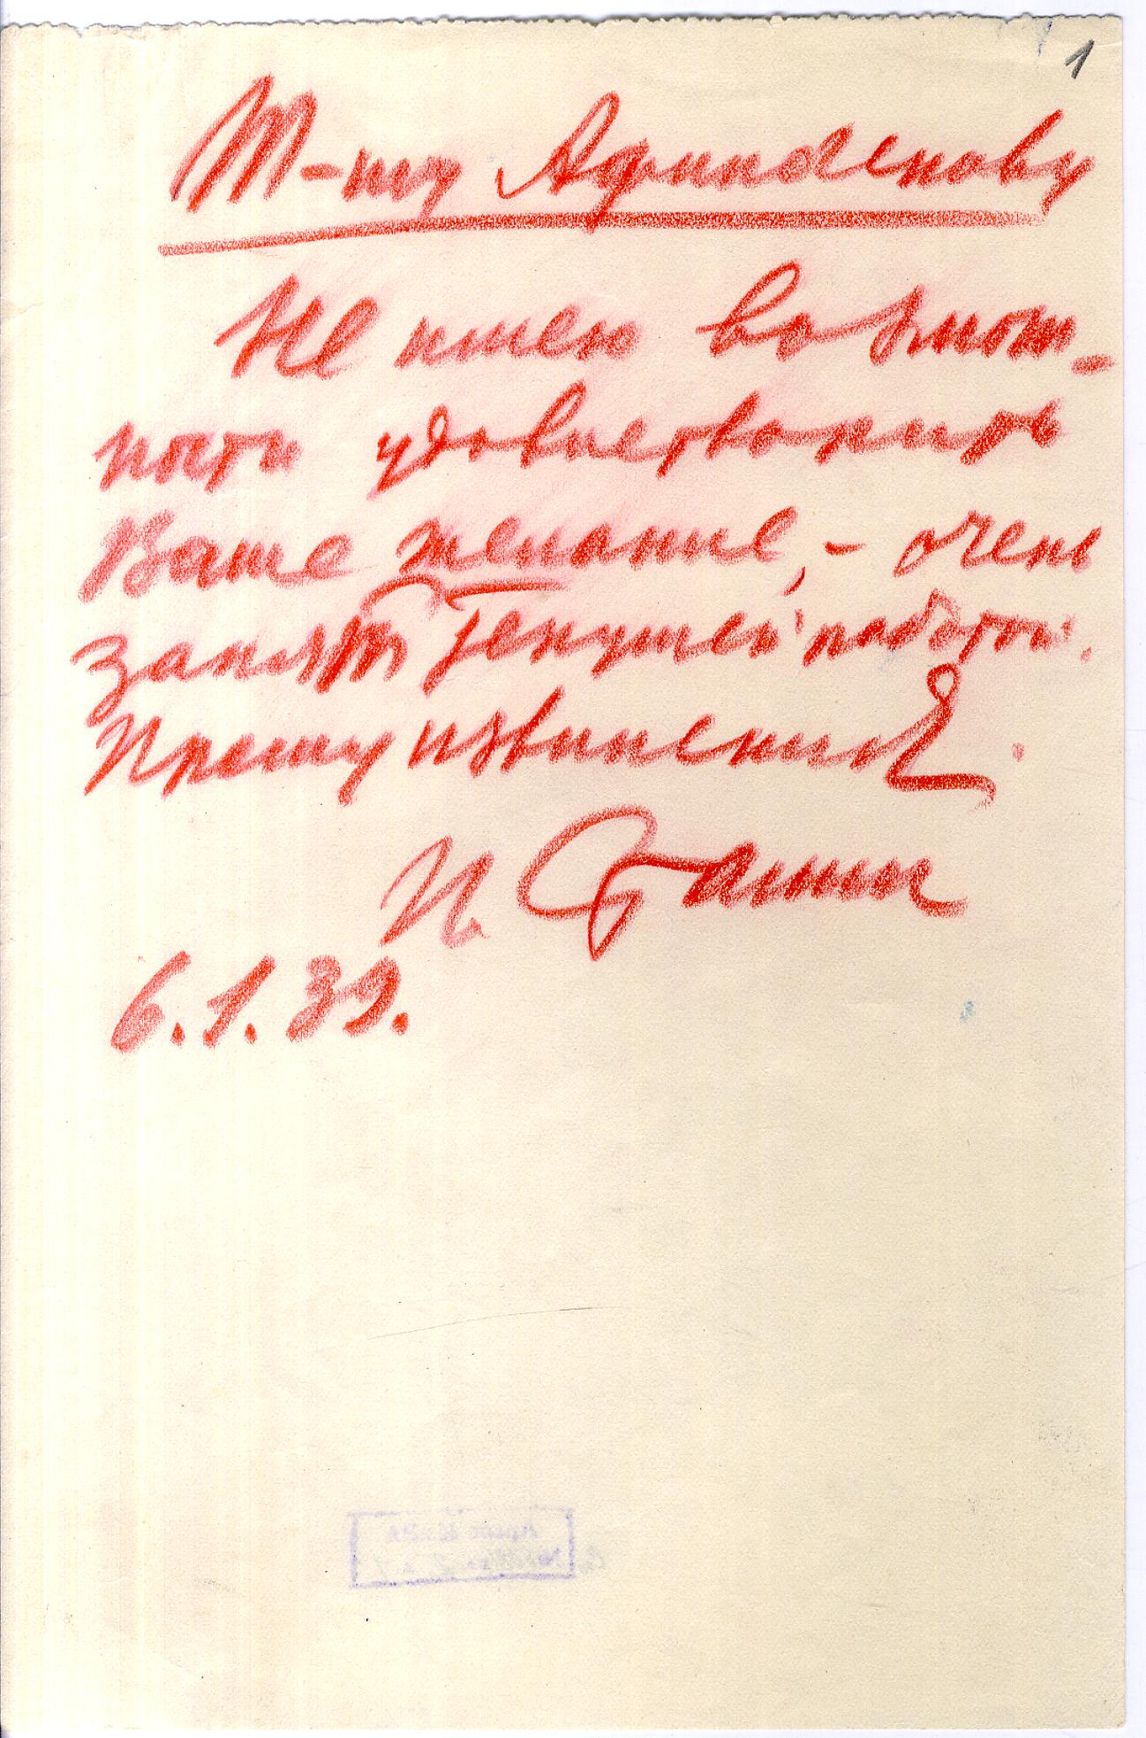 1
Т-щу Афиногенову
Не имею возмож-
ности удовлетворить
Ваше желание, – очень
занят текущей работой.
Прошу извинения.
И. Сталин
6.1.39.